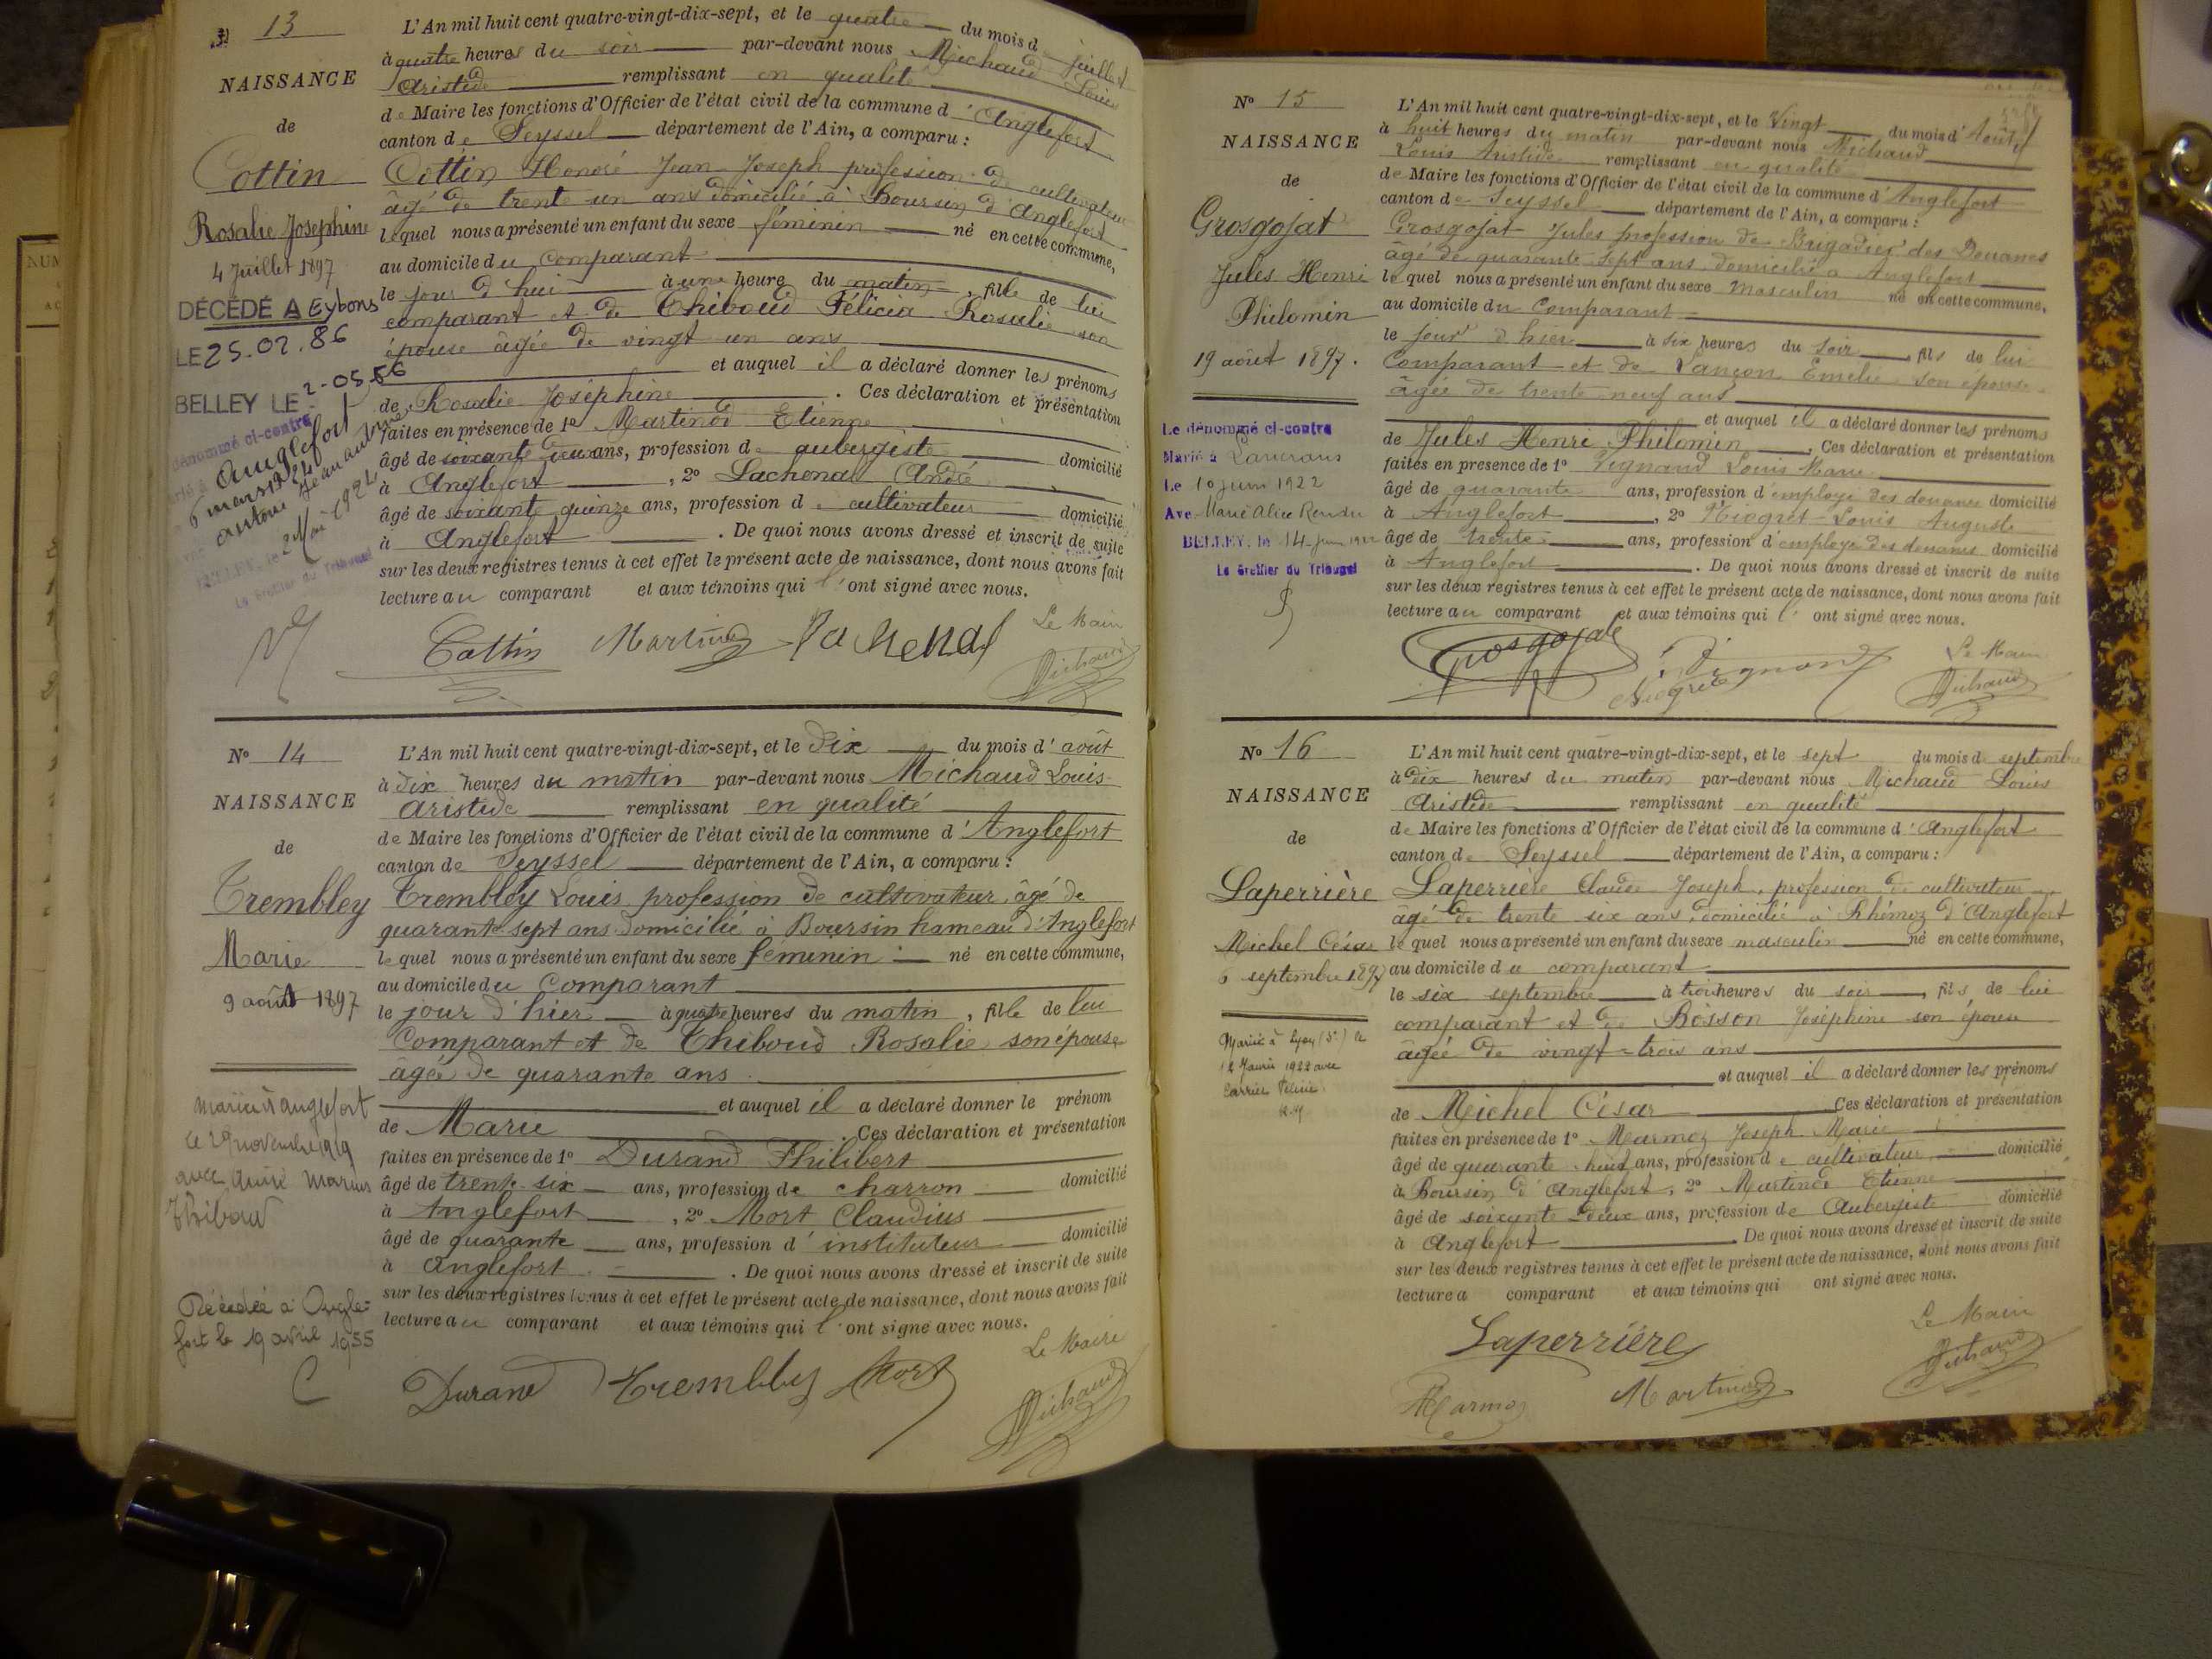 N° 13
NAISSANCE
de
Cottin
Rosalie Joséphine
4 Juillet 1897
DÉCÉDÉ A Eybens
LE 25.02.86
BELLEY LE 2-05-86
dénommé ci-contre
Anglefort
6 mars 1924
Le Greffier du Tribunal
L'An mil huit cent quatre-vingt-dix-sept, et le quatre du mois d juillet
à quatre heures du soir par-devant nous Michaud Louis
Aristide remplissant en qualité
de Maire les fonctions d'Officier de l'état civil de la commune d'Anglefort
canton de Seyssel département de l'Ain, a comparu :
Cottin Honoré Jean Joseph profession de cultivateur
âgé de trente un ans domicilié à Boursin d'Anglefort
lequel nous a présenté un enfant du sexe féminin né en cette commune,
au domicile du comparant
le jour d'hui à une heure du matin, fille de lui
comparant et de Thiboud Félicia Rosalie son
épouse âgée de vingt un ans
et auquel il a déclaré donner les prénoms
de Rosalie Joséphine. Ces déclaration et présentation
faites en présence de 1° Martinod Etienne
âgé de soixante deux ans, profession de aubergiste domicilié
à Anglefort, 2° Lachenal André
âgé de soixante quinze ans, profession de cultivateur domicilié
à Anglefort. De quoi nous avons dressé et inscrit de suite
sur les deux registres tenus à cet effet le présent acte de naissance, dont nous avons fait
lecture au comparant et aux témoins qui l'ont signé avec nous.
Le Maire
Cottin Martinod Lachenal Michaud
N° 14
NAISSANCE
de
Trembley
Marie
9 août 1897
mariée à anglefort
le 29 novembre 1919
avec Aimé Marius
Thiboud
Décédée à Angle-
fort le 19 avril 1955
L'An mil huit cent quatre-vingt-dix-sept, et le dix du mois d'août
à dix heures du matin par-devant nous Michaud Louis
Aristide remplissant en qualité
de Maire les fonctions d'Officier de l'état civil de la commune d'Anglefort
canton de Seyssel département de l'Ain, a comparu :
Trembley Louis profession de cultivateur, âgé de
quarante sept ans domicilié à Boursin hameau d'Anglefort
lequel nous a présenté un enfant du sexe féminin né en cette commune,
au domicile du Comparant
le jour d'hier à quatre heures du matin, fille de lui
Comparant et de Thiboud Rosalie son épouse
âgée de quarante ans
et auquel il a déclaré donner le prénom
de Marie. Ces déclaration et présentation
faites en présence de 1° Durand Philibert
âgé de trente-six ans, profession de charron domicilié
à Anglefort, 2° Mort Claudius
âgé de quarante ans, profession d'instituteur domicilié
à Anglefort. De quoi nous avons dressé et inscrit de suite
sur les deux registres tenus à cet effet le présent acte de naissance, dont nous avons fait
lecture au comparant et aux témoins qui l'ont signé avec nous.
Le Maire
Durand Trembley Mort Michaud
N° 15
NAISSANCE
de
Grosgojat
Jules Henri
Philomin
19 août 1897.
Le dénommé ci-contre
Marié à Lancrans
Le 10 juin 1922
Avec Marie Alice
BELLEY, le 14 juin 1922
Le Greffier du Tribunal
L'An mil huit cent quatre-vingt-dix-sept, et le Vingt du mois d'Août
à huit heures du matin par-devant nous Michaud
Louis Aristide remplissant en qualité
de Maire les fonctions d'Officier de l'état civil de la commune d'Anglefort
canton de Seyssel département de l'Ain, a comparu :
Grosgojat Jules profession de Brigadier des Douanes
âgé de quarante sept ans domicilié à Anglefort
lequel nous a présenté un enfant du sexe masculin né en cette commune,
au domicile du Comparant
le jour d'hier à six heures du soir, fils de lui
Comparant et de Lançon Emelie son épouse
âgée de trente neuf ans
et auquel il a déclaré donner les prénoms
de Jules Henri Philomin. Ces déclaration et présentation
faites en présence de 1° Vignand Louis Marie
âgé de quarante ans, profession d'employé des douanes domicilié
à Anglefort, 2° Niogret Louis Auguste
âgé de trente ans, profession d'employé des douanes domicilié
à Anglefort. De quoi nous avons dressé et inscrit de suite
sur les deux registres tenus à cet effet le présent acte de naissance, dont nous avons fait
lecture au comparant et aux témoins qui l'ont signé avec nous.
Le Maire
Grosgojat Vignand Niogret Michaud
N° 16
NAISSANCE
de
Laperrière
Michel César
6 septembre 1897
Marié à Lyon (5e) le
12 Janvier 1922 avec
L'An mil huit cent quatre-vingt-dix-sept, et le sept du mois de septembre
à dix heures du matin par-devant nous Michaud Louis
Aristide remplissant en qualité
de Maire les fonctions d'Officier de l'état civil de la commune d'Anglefort
canton de Seyssel département de l'Ain, a comparu :
Laperrière Claude Joseph, profession de cultivateur
âgé de trente six ans, domicilié à Rhémoz d'Anglefort
lequel nous a présenté un enfant du sexe masculin né en cette commune,
au domicile du comparant
le six septembre à trois heures du soir, fils de lui
comparant et de Bosson Joséphine son épouse
âgée de vingt-trois ans
et auquel il a déclaré donner les prénoms
de Michel César Ces déclaration et présentation
faites en présence de 1° Marmoz Joseph Marie
âgé de quarante huit ans, profession de cultivateur domicilié
à Boursin d'Anglefort, 2° Martinod Etienne
âgé de soixante deux ans, profession de Aubergiste domicilié
à Anglefort. De quoi nous avons dressé et inscrit de suite
sur les deux registres tenus à cet effet le présent acte de naissance, dont nous avons fait
lecture a comparant et aux témoins qui ont signé avec nous.
Le Maire
Laperrière Michaud
Marmoz Martinod